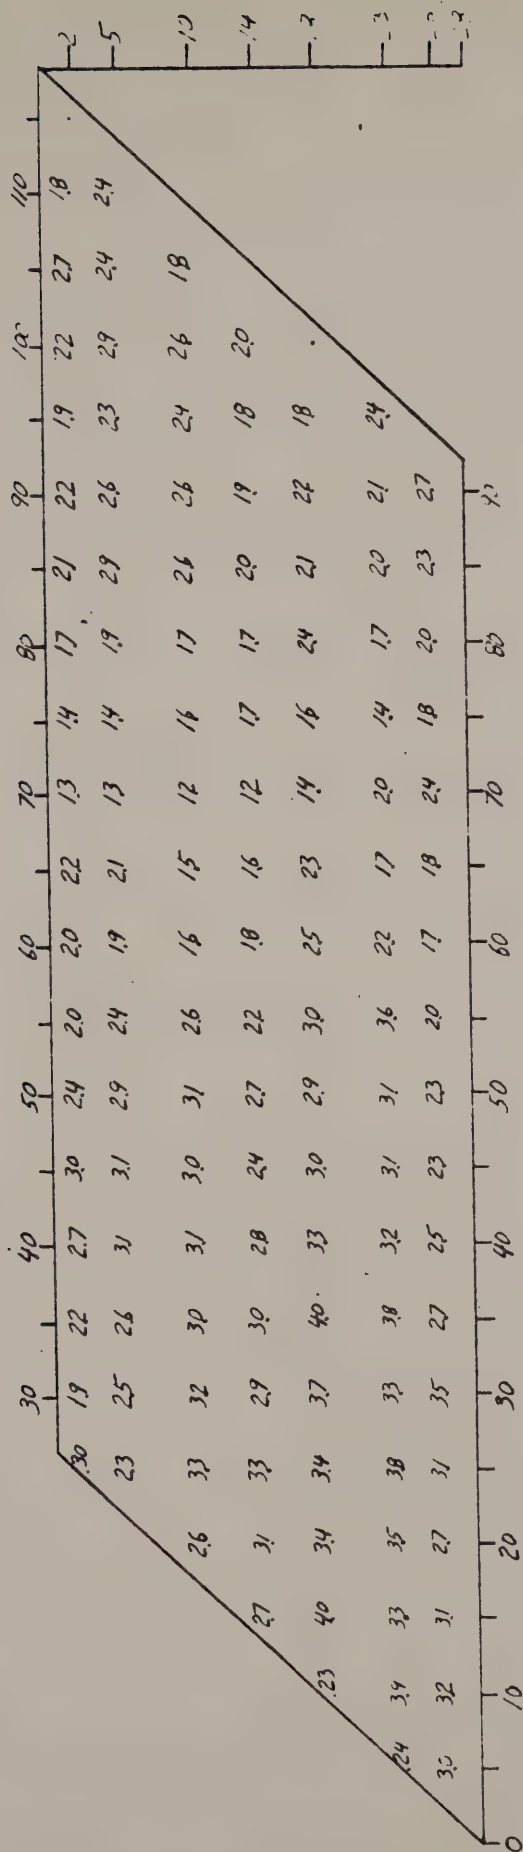 30 40 50 60 70 80 90 110
.30 1.9 2.2 2.7 3.0 2.4 2.0 2.0 2.2 1.3 1.4 1.7 2.1 2.2 1.9 2.2 2.7 1.8 2
2.3 2.5 2.6 3.1 3.1 2.9 2.4 1.9 2.1 1.3 1.4 1.9 2.9 2.6 2.3 2.9 2.4 2.4 5
2.6 3.3 3.2 3.0 3.1 3.0 3.1 2.6 1.6 1.5 1.2 1.6 1.7 2.6 2.6 2.4 2.6 1.8 10
2.7 3.1 3.3 2.9 3.0 2.8 2.4 2.7 2.2 1.8 1.6 1.2 1.7 1.7 2.0 1.9 1.8 2.0 .14
.23 4.0 3.4 3.4 3.7 4.0 3.3 3.0 2.9 3.0 2.5 2.3 1.4 1.6 2.4 2.1 2.2 1.8 .2
.24 3.9 3.3 3.5 3.8 3.3 3.8 3.2 3.1 3.1 3.6 2.2 1.7 2.0 1.4 1.7 2.0 2.1 2.4
3.0 3.2 3.1 2.7 3.1 3.5 2.7 2.5 2.3 2.3 2.0 1.7 1.8 2.4 1.8 2.0 2.3 2.7
0 10 20 30 40 50 60 70 80 90